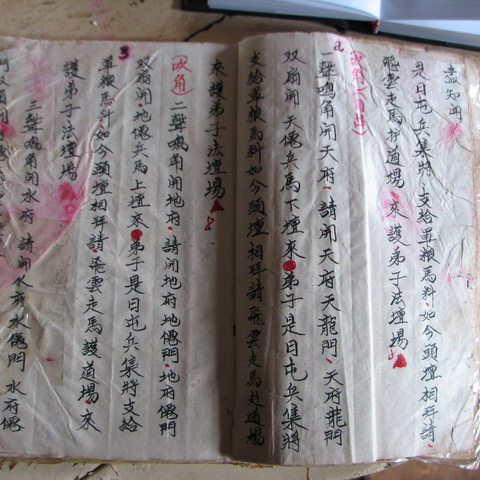 盡知聞
是日屯兵集將支給單粮馬料如今頭壇相拜請
飛雲走馬扶道場來護弟子法壇場
2
吹角
一聲鳴角開天府請開天府天龍門天府龍門
双扇開天僊兵馬下壇來弟子是日屯兵集將
支給單粮馬料如今頭壇相拜請飛雲走馬赴道場
來護弟子法壇場
3
吹角二聲鳴角開地府請開地府地僊門地府僊門
双扇開地僊兵馬上壇來弟子是日屯兵集將支給
單粮馬料如今頭壇相拜請飛雲走馬護道場來
護弟子法壇場
三聲鳴角開水府請開水府水僊門水府僊